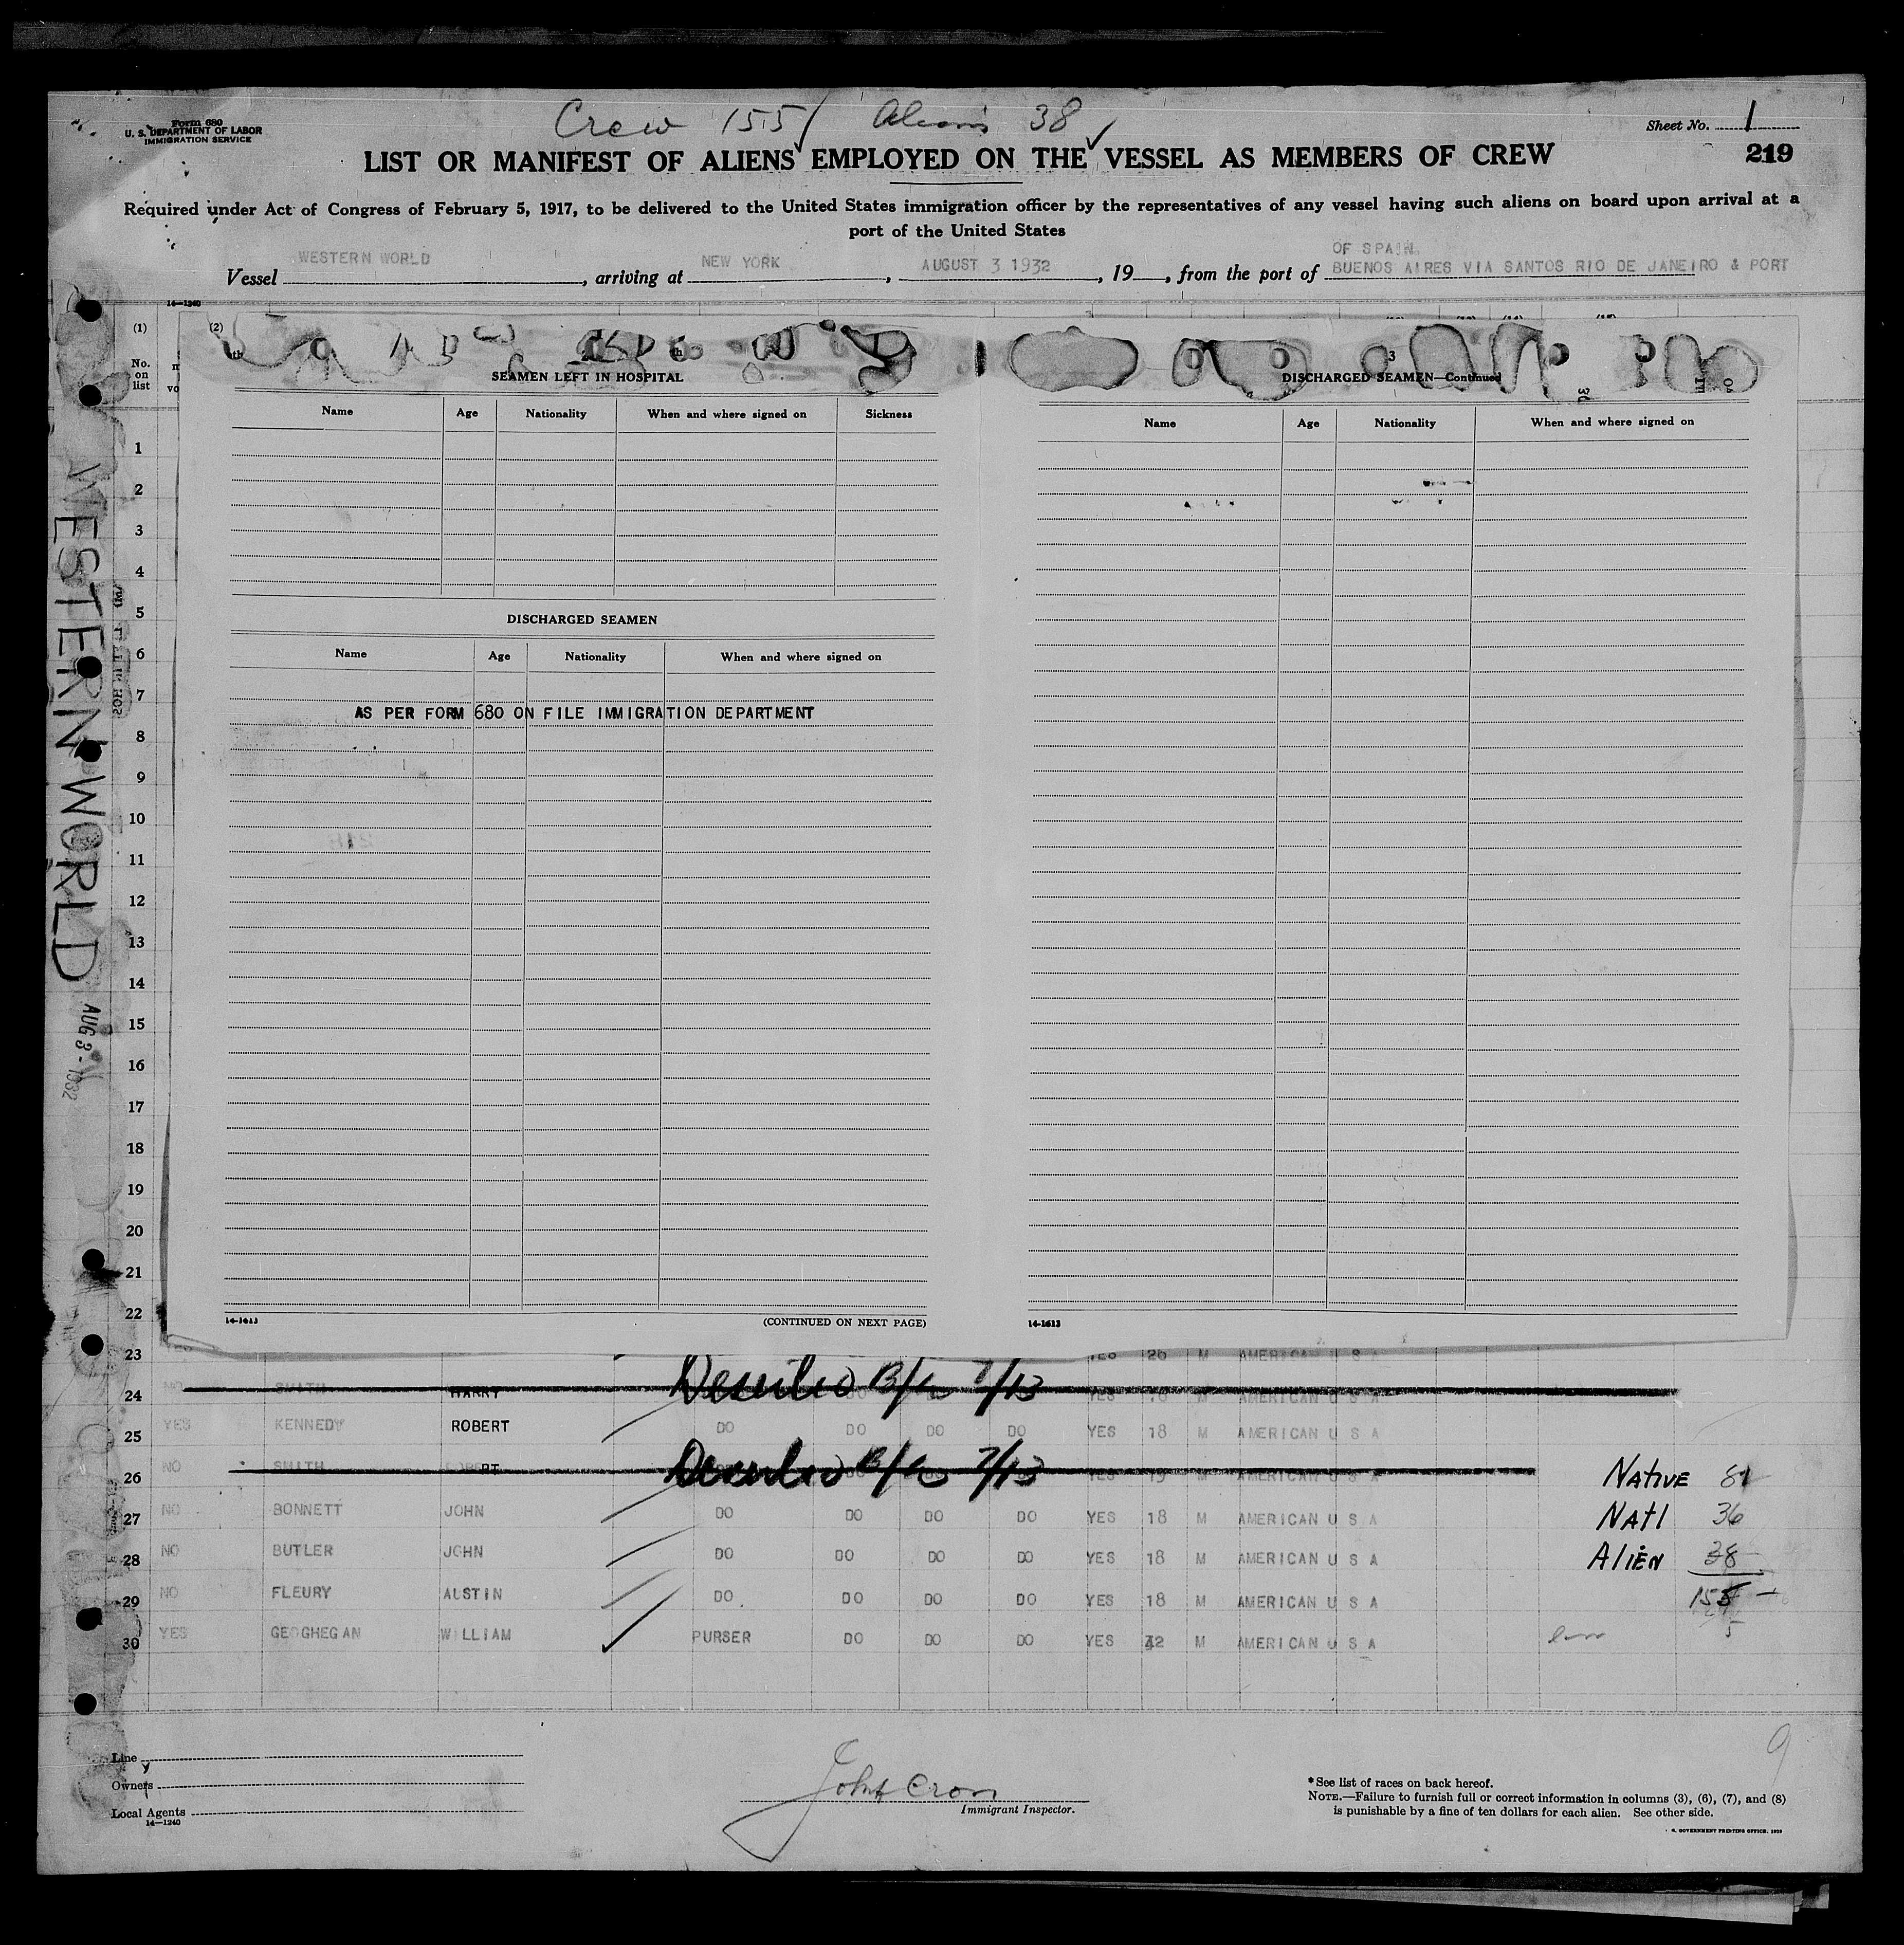 Form 680
U. S. DEPARTMENT OF LABOR
IMMIGRATION SERVICE
Crew 155 Aliens 38
Sheet No. 1
LIST OR MANIFEST OF ALIENS EMPLOYED ON THE VESSEL AS MEMBERS OF CREW
219
Required under Act of Congress of February 5, 1917, to be delivered to the United States immigration officer by the representatives of any vessel having such aliens on board upon arrival at a
port of the United States
OF SPAIN
Vessel WESTERN WORLD, arriving at NEW YORK, AUGUST 3 1932, 19, from the port of BUENOS AIRES VIA SANTOS RIO DE JANEIRO & PORT
14—1240
(1) (2)
No. on list
WESTERN WORLD
AUG 3 - 1932
SEAMEN LEFT IN HOSPITAL
Name Age Nationality When and where signed on Sickness
DISCHARGED SEAMEN
Name Age Nationality When and where signed on
AS PER FORM 680 ON FILE IMMIGRATION DEPARTMENT
14-1613
(CONTINUED ON NEXT PAGE)
3
DISCHARGED SEAMEN—Continued
Name Age Nationality When and where signed on
14-1613
1
2
3
4
5
6
7
8
9
10
11
12
13
14
15
16
17
18
19
20
21
22
23 YES 20 M AMERICAN U S A
24 NO SMITH HARRY YES AMERICAN U S A
25 YES KENNEDY ROBERT DO DO DO DO YES 18 M AMERICAN U S A
26 NO SMITH 7/13 YES 19 AMERICAN U S A
27 NO BONNETT JOHN DO DO DO DO YES 18 M AMERICAN U S A
28 NO BUTLER JOHN DO DO DO DO YES 18 M AMERICAN U S A
29 NO FLEURY AUSTIN DO DO DO DO YES 18 M AMERICAN U S A
30 YES GEOGHEGAN WILLIAM PURSER DO DO DO YES 32 M AMERICAN U S A
NATIVE 81
NATL 36
ALIEN 38
155
9
Line
Owners
Local Agents
14—1240
John Cron
Immigrant Inspector.
*See list of races on back hereof.
NOTE.—Failure to furnish full or correct information in columns (3), (6), (7), and (8)
is punishable by a fine of ten dollars for each alien. See other side.
GOVERNMENT PRINTING OFFICE.